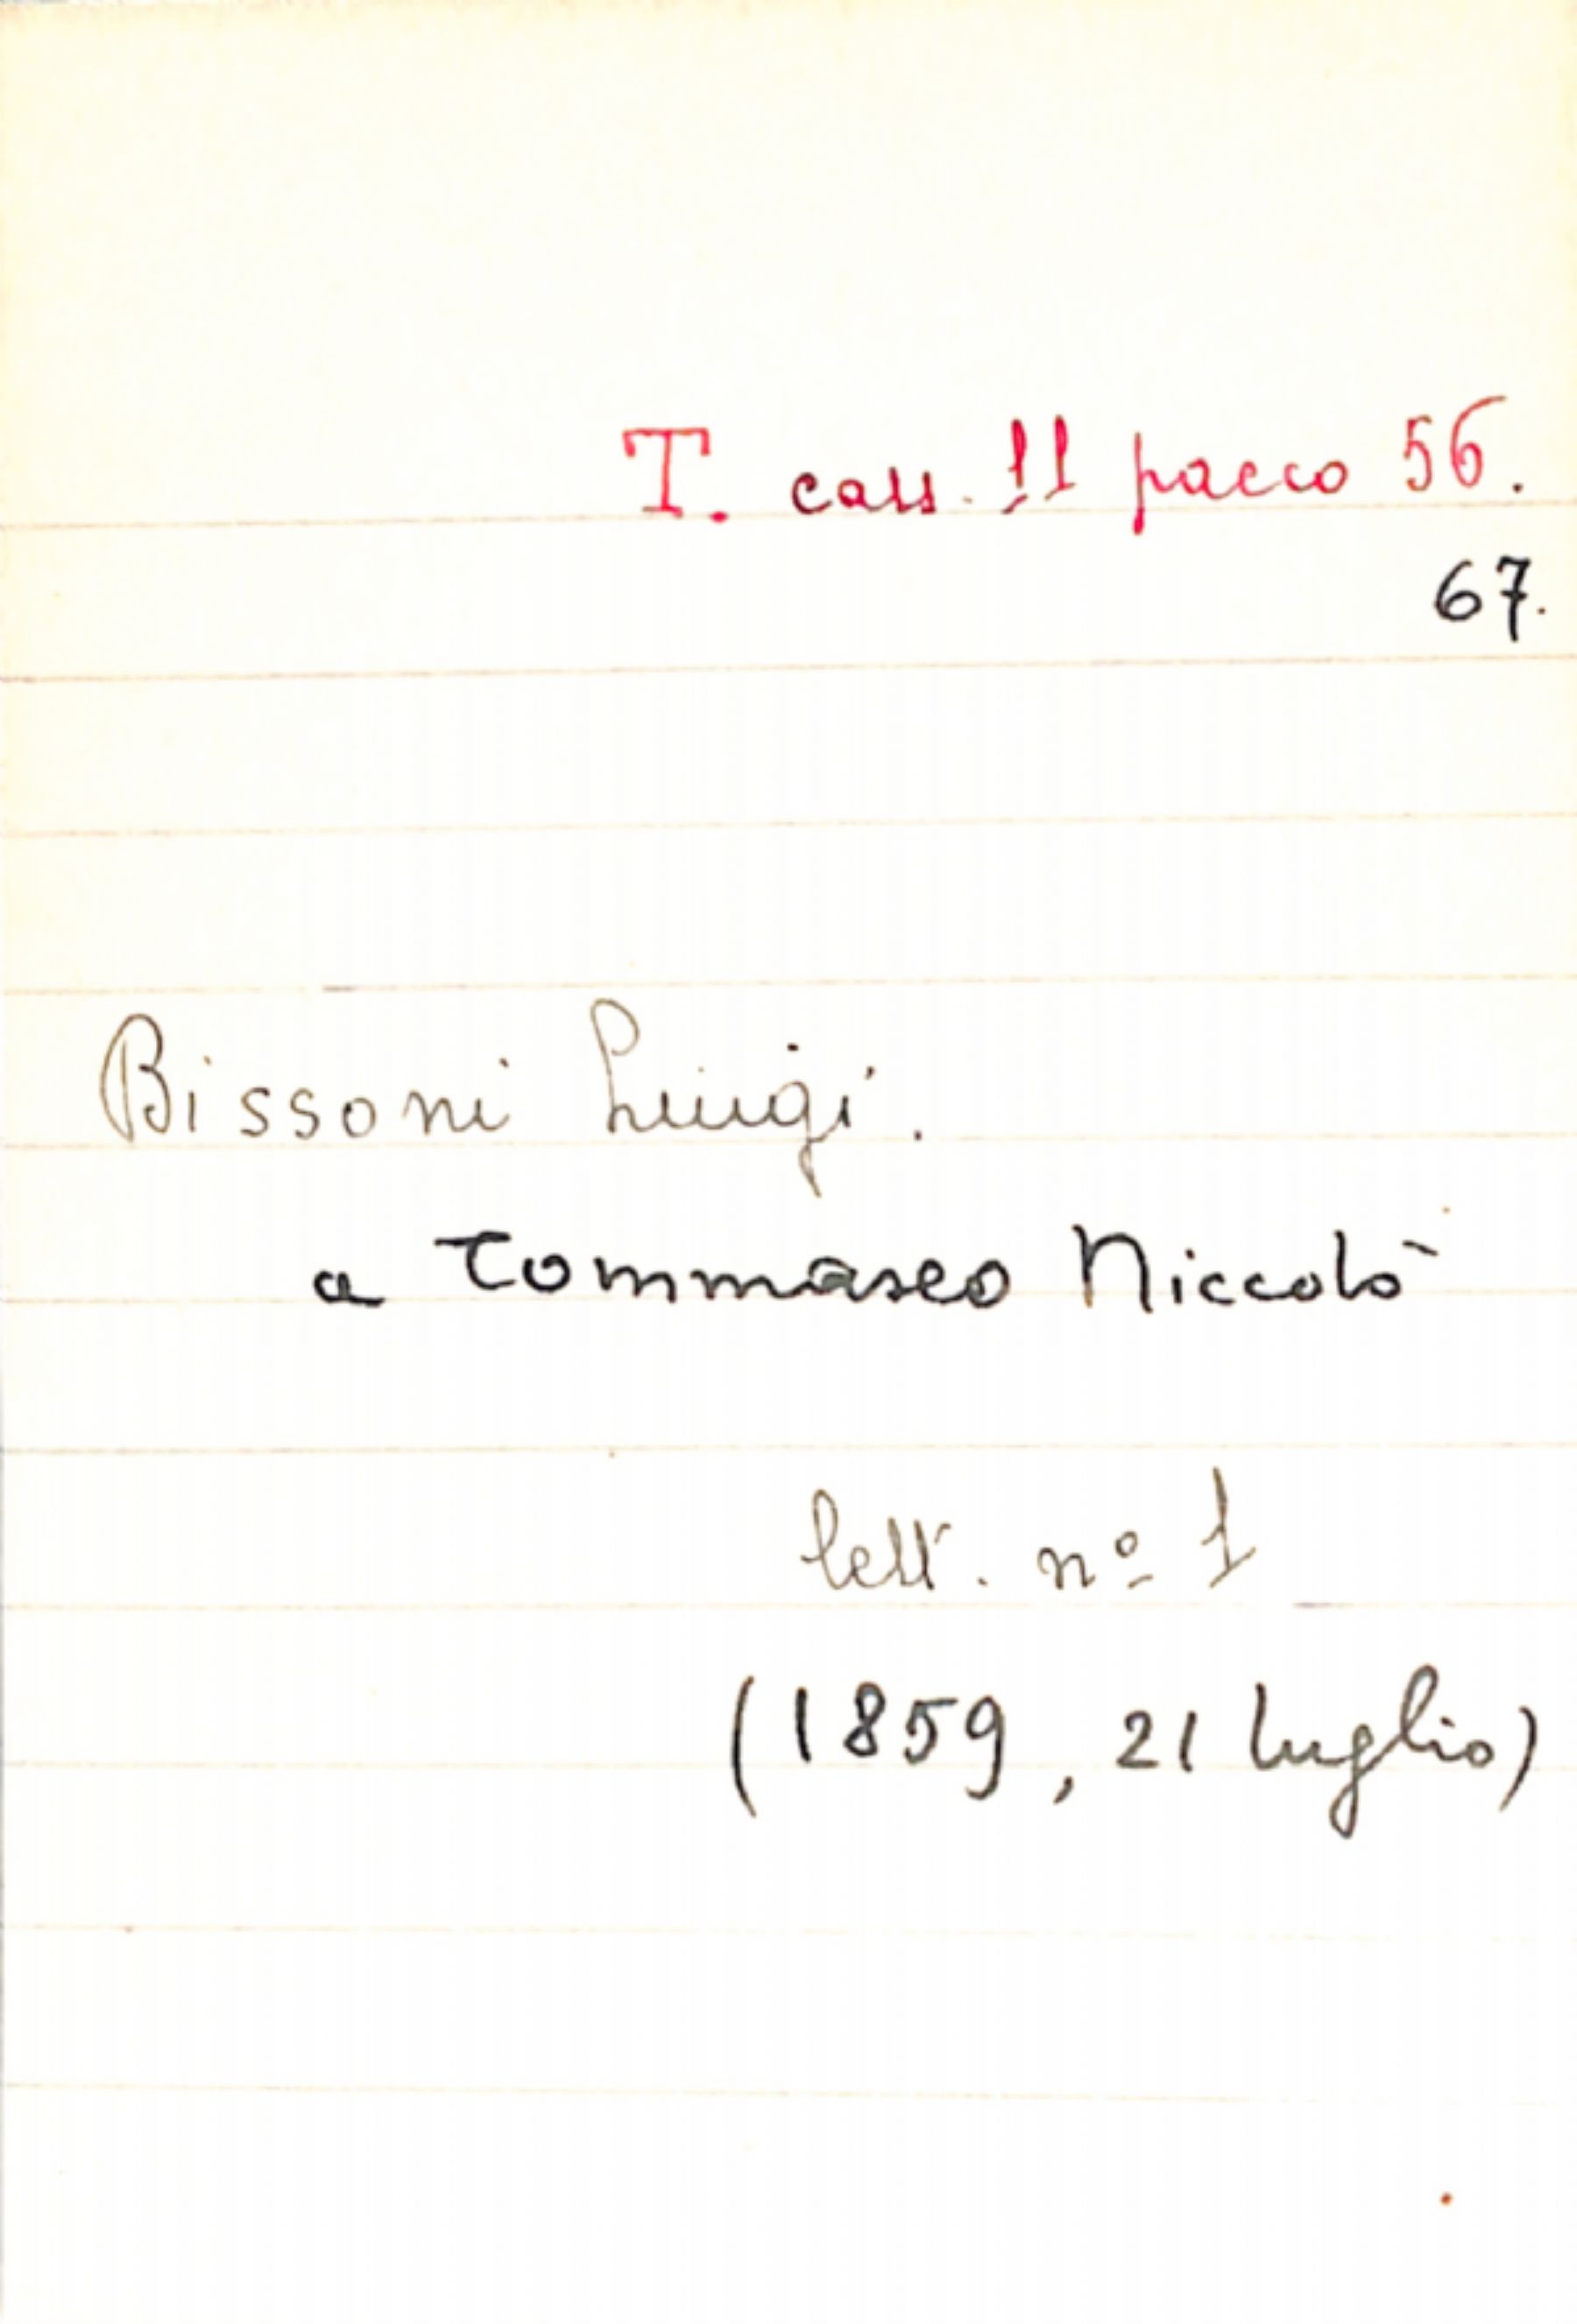 T. cass. 11 pacco 56.
67.
Bissoni Luigi.
a Tommaseo Niccolò
lett. nº 1
(1859, 21 luglio)